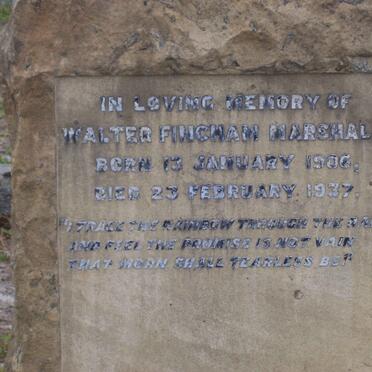 IN LOVING MEMORY OF
WALTER FINCHAM MARSHAL
BORN 13 JANUARY 1906,
DIED 23 FEBRUARY 1937.
"I TRACE THE RAINBOW THROUGH THE RA
AND FEEL THE PROMISE IS NOT VAIN
THAT MORN SHALL TEARLESS BE."